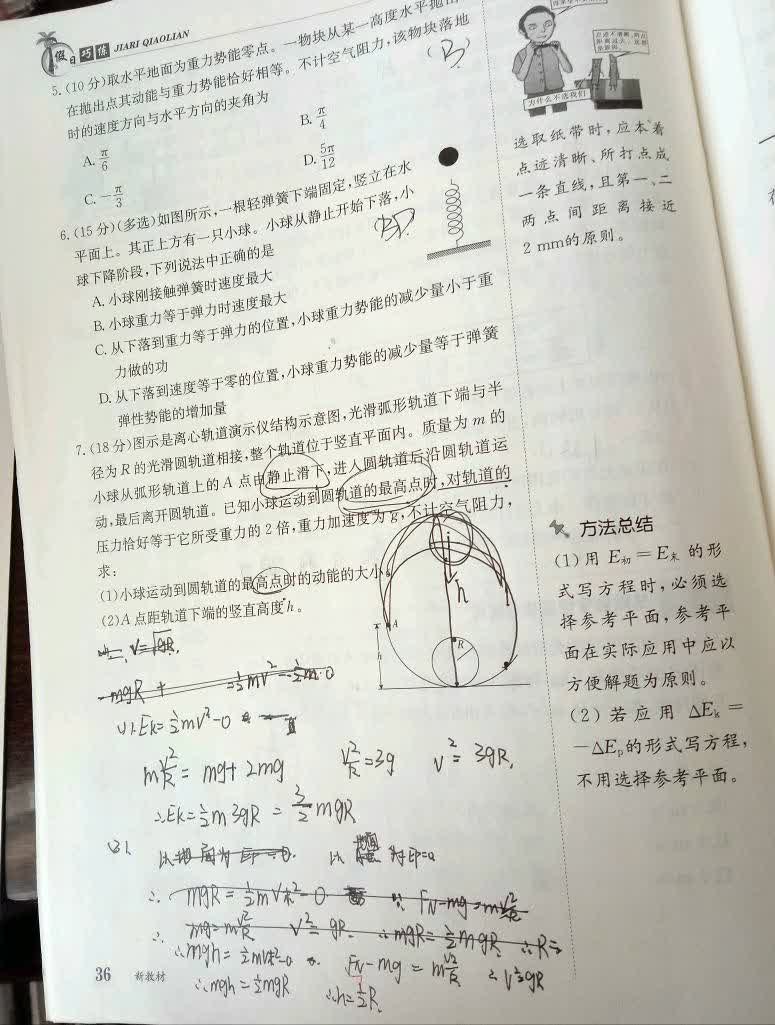 假日巧练 JIARI QIAOLIAN
5.(10分)取水平地面为重力势能零点。一物块从某一高度水平抛出
在抛出点其动能与重力势能恰好相等。不计空气阻力,该物块落地
时的速度方向与水平方向的夹角为
(B)
A. π/6
B. π/4
C. -π/3
D. 5π/12
6.(15分)(多选)如图所示,一根轻弹簧下端固定,竖立在水
平面上。其正上方有一只小球。小球从静止开始下落,小
球下降阶段,下列说法中正确的是
BD
A. 小球刚接触弹簧时速度最大
B. 小球重力等于弹力时速度最大
C. 从下落到重力等于弹力的位置,小球重力势能的减少量小于重
力做的功
D. 从下落到速度等于零的位置,小球重力势能的减少量等于弹簧
弹性势能的增加量
7.(18分)图示是离心轨道演示仪结构示意图,光滑弧形轨道下端与半
径为R的光滑圆轨道相接,整个轨道位于竖直平面内。质量为m的
小球从弧形轨道上的A点由静止滑下,进人圆轨道后沿圆轨道运
动,最后离开圆轨道。已知小球运动到圆轨道的最高点时,对轨道的
压力恰好等于它所受重力的2倍,重力加速度为g,不计空气阻力,
求:
(1)小球运动到圆轨道的最高点时的动能的大小。
(2)A点距轨道下端的竖直高度h。
A
h
R
h
V=√gR.
-mgR + =½mv²-½m·0
(1)Ek=½mv²-0
mv²/R = mg+2mg v²/R=3g v²=3gR,
∴Ek=½m3gR = 3/2 mgR
(2)、
∴ mgR=½mv末²-0 ∵ FN-mg=mv²/R
∴ mg=mv²/R V²=gR ∴mgR=½mgR ∴R=
∴mgh=½mv末²-0 FN-mg=mv²/R ∴v²=gR
∴mgh=½mgR ∴h=½R.
36 新教材
为什么不选我们
选取纸带时,应本着
点迹清晰、所打点成
一条直线,且第一、二
两点间距离接近
2 mm的原则。
方法总结
(1)用E初=E末的形
式写方程时,必须选
择参考平面,参考平
面在实际应用中应以
方便解题为原则。
(2)若应用ΔEk=
-ΔEp的形式写方程,
不用选择参考平面。